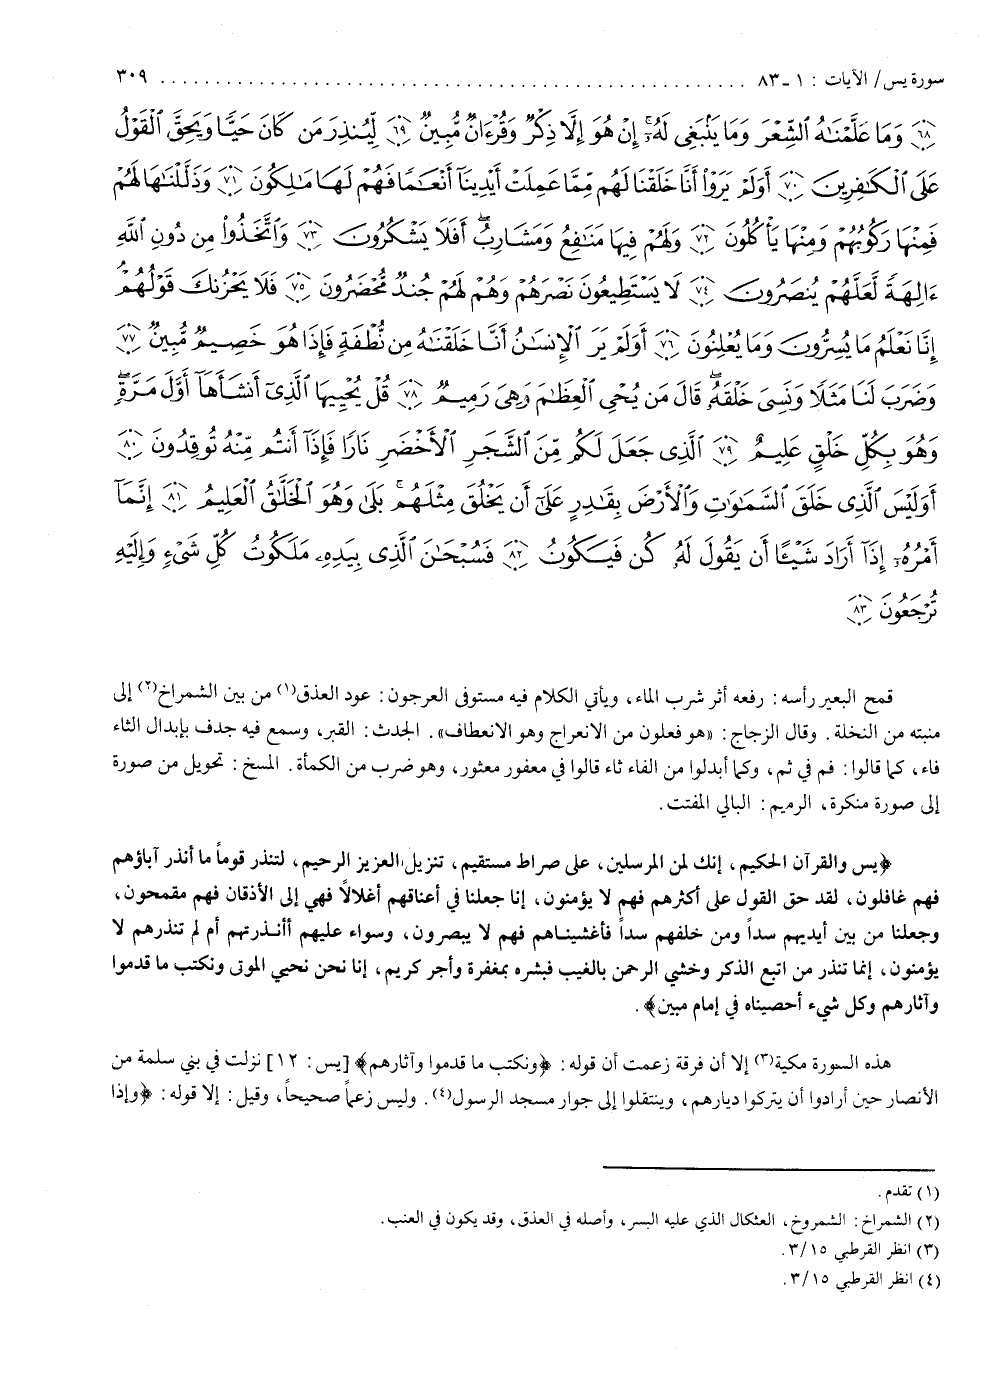 سورة يس/ الآيات : ١ ـ ٨٣ ................................................ ٣٠٩
٦٨ وَمَا عَلَّمْنَٰهُ ٱلشِّعْرَ وَمَا يَنۢبَغِى لَهُۥٓ إِنْ هُوَ إِلَّا ذِكْرٌ وَقُرْءَانٌ مُّبِينٌ ٦٩ لِّيُنذِرَ مَن كَانَ حَيًّا وَيَحِقَّ ٱلْقَوْلُ
عَلَى ٱلْكَٰفِرِينَ ٧٠ أَوَلَمْ يَرَوْا۟ أَنَّا خَلَقْنَا لَهُم مِّمَّا عَمِلَتْ أَيْدِينَآ أَنْعَٰمًا فَهُمْ لَهَا مَٰلِكُونَ ٧١ وَذَلَّلْنَٰهَا لَهُمْ
فَمِنْهَا رَكُوبُهُمْ وَمِنْهَا يَأْكُلُونَ ٧٢ وَلَهُمْ فِيهَا مَنَٰفِعُ وَمَشَارِبُ ۖ أَفَلَا يَشْكُرُونَ ٧٣ وَٱتَّخَذُوا۟ مِن دُونِ ٱللَّهِ
ءَالِهَةً لَّعَلَّهُمْ يُنصَرُونَ ٧٤ لَا يَسْتَطِيعُونَ نَصْرَهُمْ وَهُمْ لَهُمْ جُندٌ مُّحْضَرُونَ ٧٥ فَلَا يَحْزُنكَ قَوْلُهُمْ ۘ
إِنَّا نَعْلَمُ مَا يُسِرُّونَ وَمَا يُعْلِنُونَ ٧٦ أَوَلَمْ يَرَ ٱلْإِنسَٰنُ أَنَّا خَلَقْنَٰهُ مِن نُّطْفَةٍ فَإِذَا هُوَ خَصِيمٌ مُّبِينٌ ٧٧
وَضَرَبَ لَنَا مَثَلًا وَنَسِىَ خَلْقَهُۥ ۖ قَالَ مَن يُحْىِ ٱلْعِظَٰمَ وَهِىَ رَمِيمٌ ٧٨ قُلْ يُحْيِيهَا ٱلَّذِىٓ أَنشَأَهَآ أَوَّلَ مَرَّةٍ ۖ
وَهُوَ بِكُلِّ خَلْقٍ عَلِيمٌ ٧٩ ٱلَّذِى جَعَلَ لَكُم مِّنَ ٱلشَّجَرِ ٱلْأَخْضَرِ نَارًا فَإِذَآ أَنتُم مِّنْهُ تُوقِدُونَ ٨٠
أَوَلَيْسَ ٱلَّذِى خَلَقَ ٱلسَّمَٰوَٰتِ وَٱلْأَرْضَ بِقَٰدِرٍ عَلَىٰٓ أَن يَخْلُقَ مِثْلَهُم ۚ بَلَىٰ وَهُوَ ٱلْخَلَّٰقُ ٱلْعَلِيمُ ٨١ إِنَّمَآ
أَمْرُهُۥٓ إِذَآ أَرَادَ شَيْـًٔا أَن يَقُولَ لَهُۥ كُن فَيَكُونُ ٨٢ فَسُبْحَٰنَ ٱلَّذِى بِيَدِهِۦ مَلَكُوتُ كُلِّ شَىْءٍ وَإِلَيْهِ
تُرْجَعُونَ ٨٣
قمح البعير رأسه: رفعه أثر شرب الماء، ويأتي الكلام فيه مستوفى العرجون: عود العذق(١) من بين الشمراخ(٢) إلى
منبته من النخلة. وقال الزجاج: «هو فعلون من الانعراج وهو الانعطاف». الجدث: القبر، وسمع فيه جدف بإبدال الثاء
فاء، كما قالوا: فم في ثم، وكما أبدلوا من الفاء ثاء قالوا في معفور معثور، وهو ضرب من الكمأة. المسخ: تحويل من صورة
إلى صورة منكرة، الرميم: البالي المفتت.
﴿يس والقرآن الحكيم، إنك لمن المرسلين، على صراط مستقيم، تنزيل العزيز الرحيم، لتنذر قوماً ما أنذر آباؤهم
فهم غافلون، لقد حق القول على أكثرهم فهم لا يؤمنون، إنا جعلنا في أعناقهم أغلالاً فهي إلى الأذقان فهم مقمحون،
وجعلنا من بين أيديهم سداً ومن خلفهم سداً فأغشيناهم فهم لا يبصرون، وسواء عليهم أأنذرتهم أم لم تنذرهم لا
يؤمنون، إنما تنذر من اتبع الذكر وخشي الرحمن بالغيب فبشره بمغفرة وأجر كريم، إنا نحن نحيي الموتى ونكتب ما قدموا
وآثارهم وكل شيء أحصيناه في إمام مبين﴾.
هذه السورة مكية(٣) إلا أن فرقة زعمت أن قوله: ﴿ونكتب ما قدموا وآثارهم﴾ [يس: ١٢] نزلت في بني سلمة من
الأنصار حين أرادوا أن يتركوا ديارهم، وينتقلوا إلى جوار مسجد الرسول(٤). وليس زعماً صحيحاً، وقيل: إلا قوله: ﴿وإذا
(١) تقدم.
(٢) الشمراخ: الشمروخ، العثكال الذي عليه البسر، وأصله في العذق، وقد يكون في العنب.
(٣) انظر القرطبي ٣/١٥.
(٤) انظر القرطبي ٣/١٥.